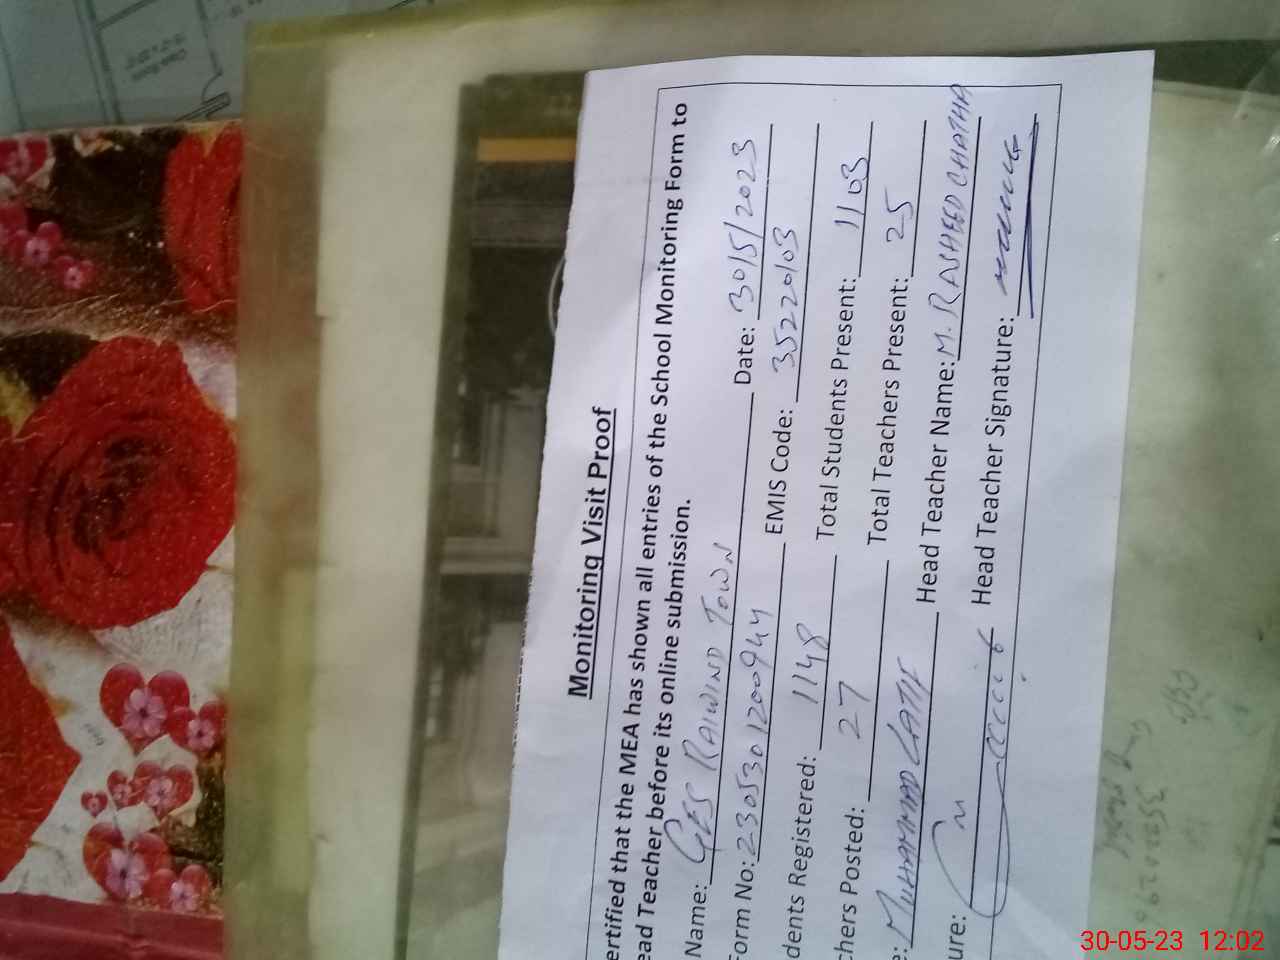 Monitoring Visit Proof
ertified that the MEA has shown all entries of the School Monitoring Form to
ead Teacher before its online submission.
Name: GES RAIWIND TOWN Date: 30/5/2023
Form No: 2305301200944 EMIS Code: 35220103
dents Registered: 1148 Total Students Present: 1103
chers Posted: 27 Total Teachers Present: 25
e: MUHAMMAD LATIF Head Teacher Name: M. RASHEED CHATHA
ure: Head Teacher Signature:
30-05-23 12:02